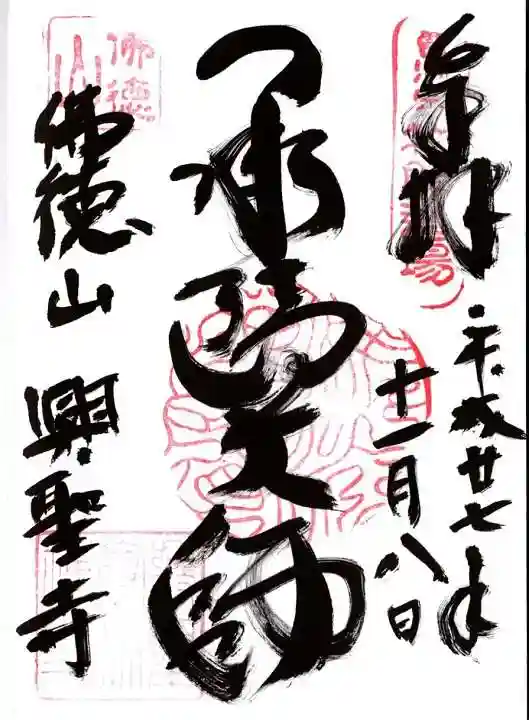 奉拝
平成廿七年
十一月八日
承陽大師
佛徳山
佛徳山 興聖寺